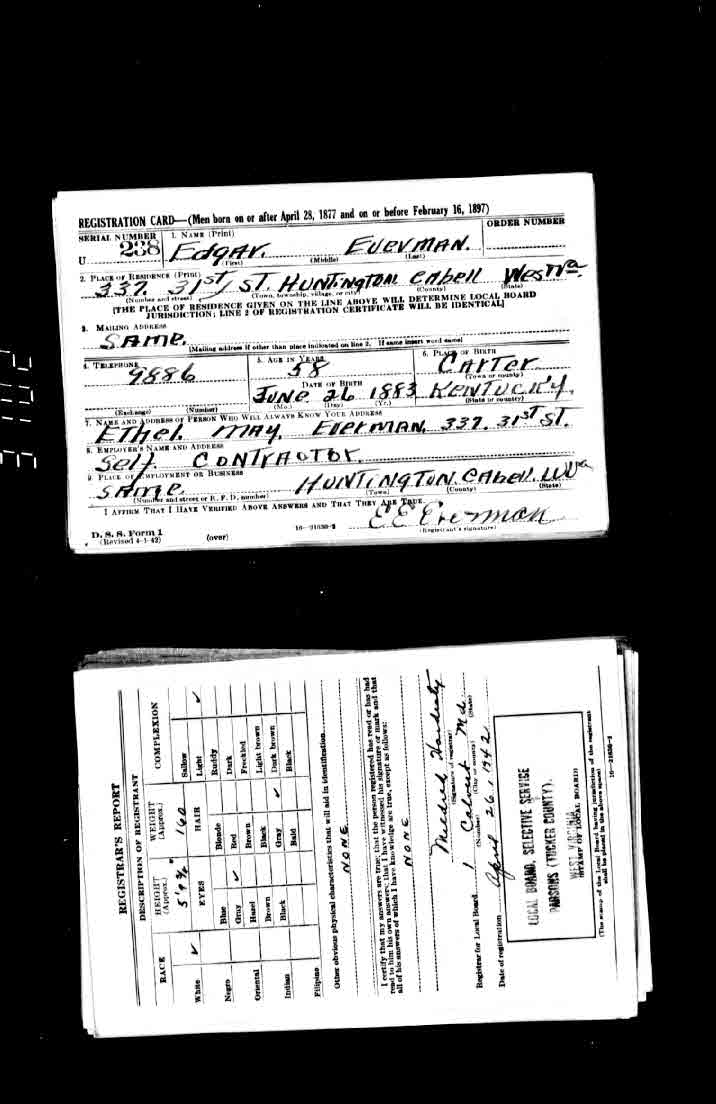 REGISTRATION CARD—(Men born on or after April 28, 1877 and on or before February 16, 1897)
SERIAL NUMBER 1. NAME (Print) ORDER NUMBER
U 238 EdgAr. EvErMAN.
(First) (Middle) (Last)
2. PLACE OF RESIDENCE (Print)
337. 31ST ST. HUNTINgTON CAbEll WEST Va.
(Number and street) (Town, township, village, or city) (County) (State)
[THE PLACE OF RESIDENCE GIVEN ON THE LINE ABOVE WILL DETERMINE LOCAL BOARD
JURISDICTION; LINE 2 OF REGISTRATION CERTIFICATE WILL BE IDENTICAL]
3. MAILING ADDRESS
SAME.
(Mailing address if other than place indicated on line 2. If same insert word same)
4. TELEPHONE 5. AGE IN YEARS 6. PLACE OF BIRTH
9886 58 CArTEr
DATE OF BIRTH (Town or county)
JUNE 26 1883 KENTUCKY.
(Exchange) (Number) (Mo.) (Day) (Yr.) (State or country)
7. NAME AND ADDRESS OF PERSON WHO WILL ALWAYS KNOW YOUR ADDRESS
EThEl. MAY. EvErMAN. 337. 31ST ST.
8. EMPLOYER'S NAME AND ADDRESS
SElf. CONTrACTOr.
9. PLACE OF EMPLOYMENT OR BUSINESS
SAME. HUNTINgTON. CAbEll. WVa
(Number and street or R. F. D. number) (Town) (County) (State)
I AFFIRM THAT I HAVE VERIFIED ABOVE ANSWERS AND THAT THEY ARE TRUE.
E E Everman
D. S. S. Form 1 16—21630-2 (Registrant's signature)
(Revised 4-1-42) (over)
REGISTRAR'S REPORT
DESCRIPTION OF REGISTRANT
RACE HEIGHT (Approx.) WEIGHT (Approx.) COMPLEXION
5' 9 3/4" 160 Sallow
White ✓ EYES HAIR Light ✓
Blue Blonde Ruddy
Negro Gray ✓ Red Dark
Hazel Brown Freckled
Oriental Brown Black Light brown
Black Gray ✓ Dark brown
Indian Bald Black
Filipino
Other obvious physical characteristics that will aid in identification
NONE
I certify that my answers are true; that the person registered has read or has had
read to him his own answers; that I have witnessed his signature or mark and that
all of his answers of which I have knowledge are true, except as follows:
NONE
Mildred Hardesty
(Signature of registrar)
Registrar for Local Board 1 Calvert Md
(Number) (City or county) (State)
Date of registration April 26, 1942
LOCAL BOARD, SELECTIVE SERVICE
PARSONS (TUCKER COUNTY),
WEST VIRGINIA
(STAMP OF LOCAL BOARD)
(The stamp of the Local Board having jurisdiction of the registrant
shall be placed in the above space)
16—21630-1